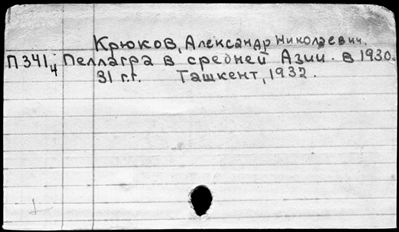 Крюков, Александр Николаевич.
П341/4 Пеллагра в средней Азии. в 1930-
31 г.г. Ташкент, 1932.